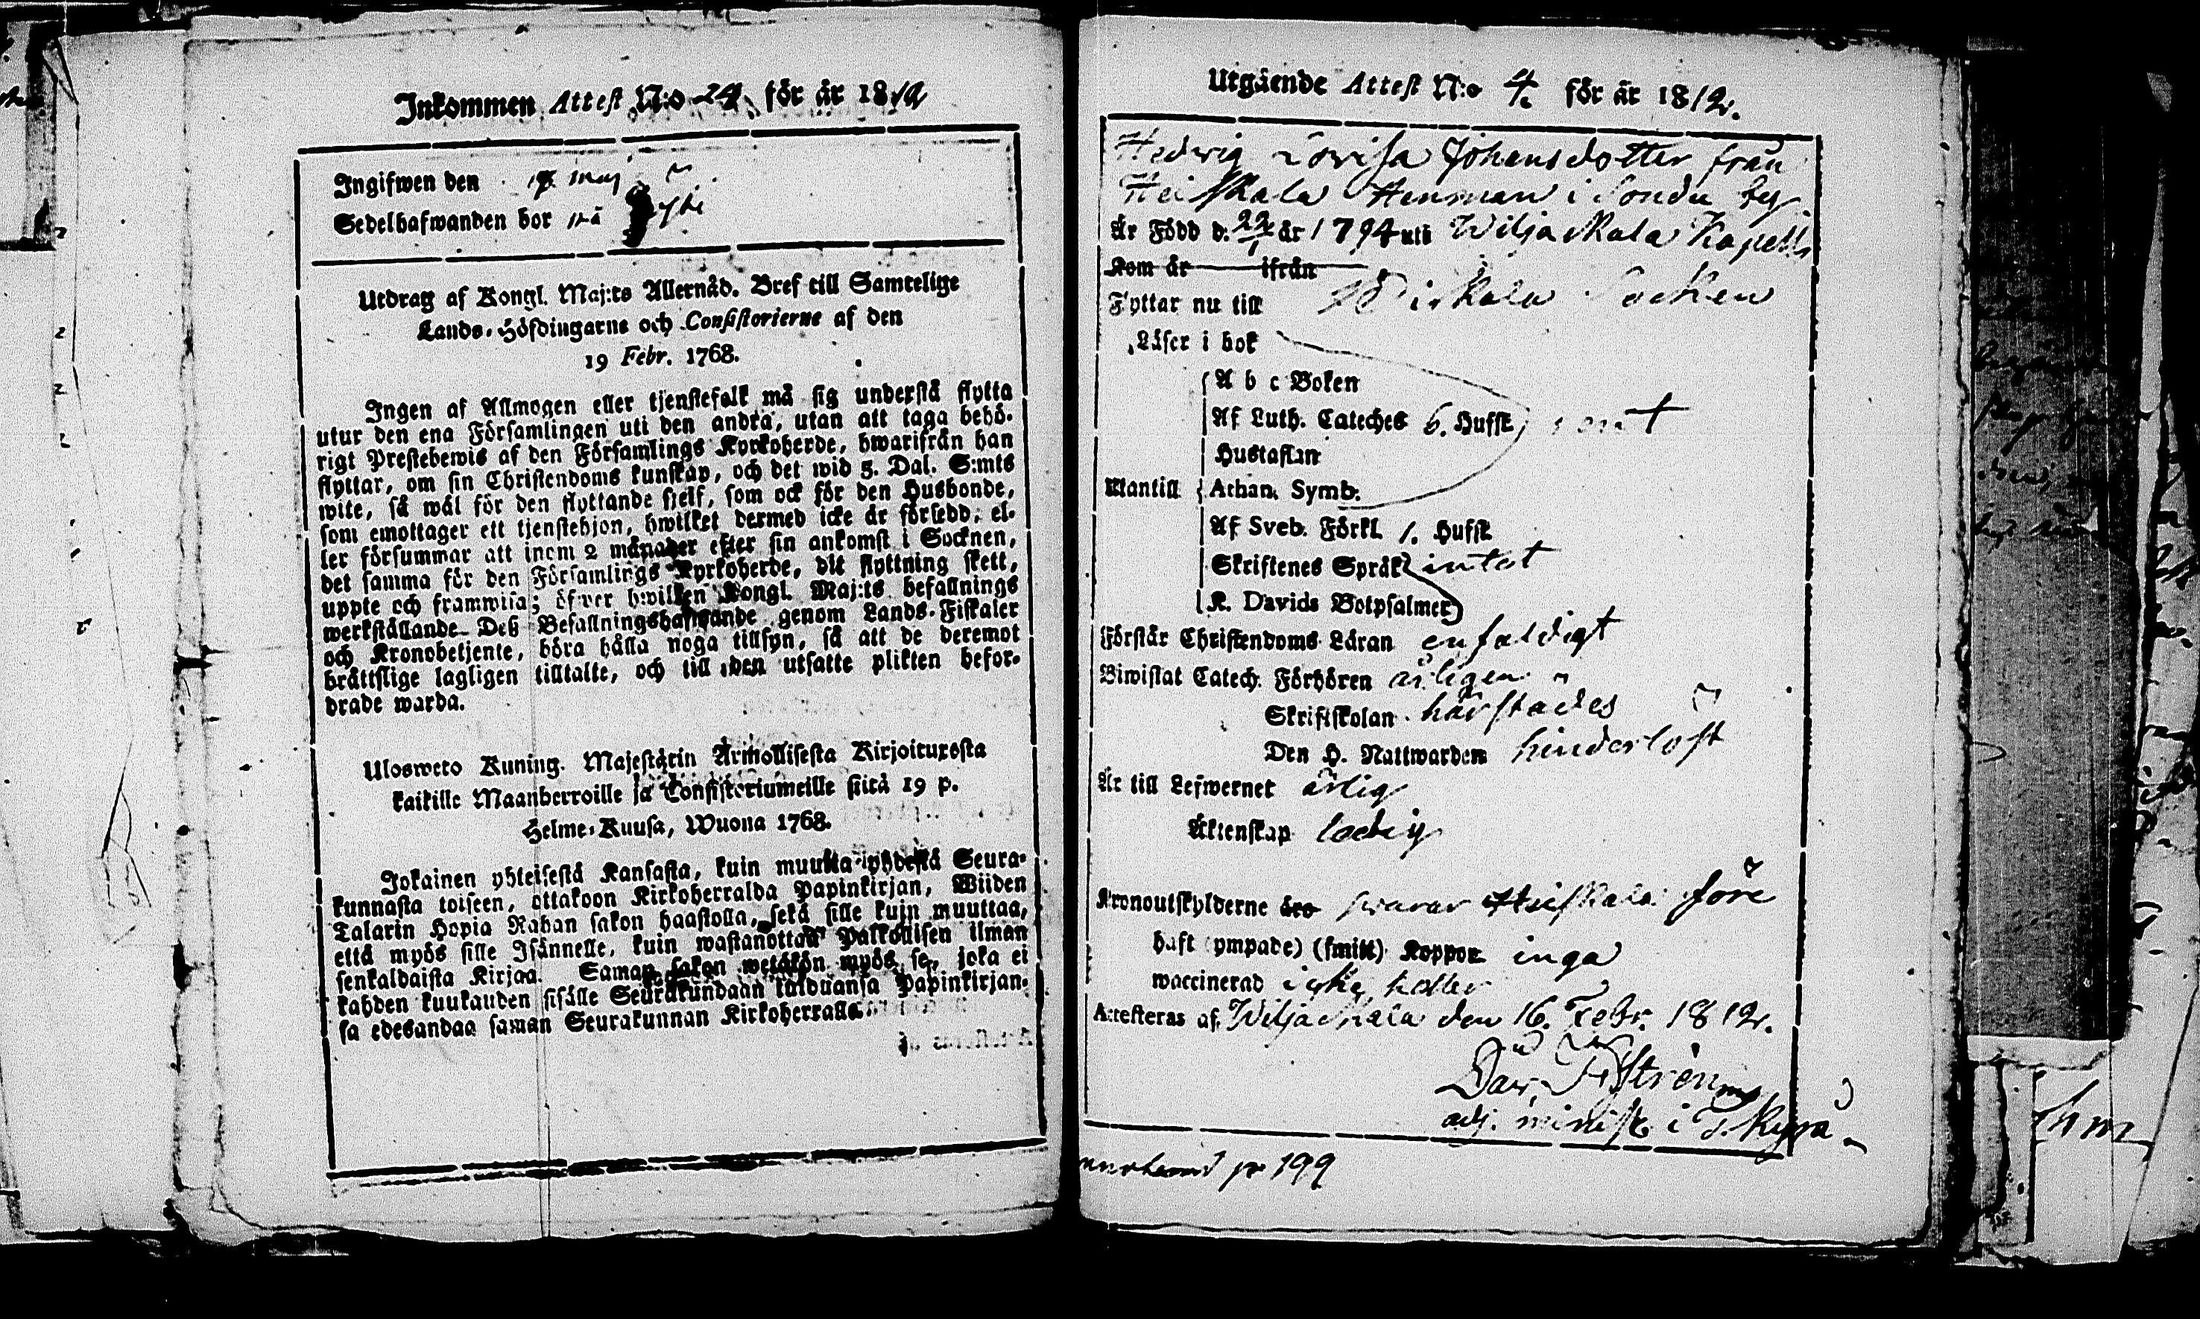 Inkommen Attest N:o 24 för år 1812
Ingifwen den 18 maj
Sedelhafwanden bor
Utdrag af Kongl. Maj:ts Allernåd. Bref till Samtelige
Lands-Höfdingarne och Consistorierne af den
19 Febr. 1768.
Ingen af Allmogen eller tjenstefolk må sig understå flytta
utur den ena Församlingen uti den andra, utan att taga behö-
rigt Prestebewis af den Församlings Kyrkoherde, hwarifrån han
flyttar, om sin Christendoms kunskap, och det wid 5. Dal. S:mts
wite, så wäl för den flyttande sjelf, som ock för den Husbonde,
som emottager ett tjenstehjon, hwilket dermed icke är försedd; el-
ler försummar att inom 2 månader efter sin ankomst i Socknen,
det samma för den Församlings Kyrkoherde, dit flyttning skett,
uppte och framwisa; öfwer hwilken Kongl. Maj:ts befallnings
werkställande Deß Befallningshafwande genom Lands-Fiskaler
och Kronobetjente, böra hålla noga tillsyn, så att de deremot
brättslige lagligen tilltalte, och till den utsatte plikten befor-
drade warda.
Ulosweto Kuning. Majestätin Armollisesta Kirjoituxesta
kaikille Maanherroille ja Consistoriumeille siitä 19 p.
Helme-Kuusa, Wuona 1768.
Jokainen yhteisestä Kansasta, kuin muutta yhdestä Seura-
kunnasta toiseen, ottakoon Kirkoherralda Papinkirjan, Wiiden
Talarin Hopia Rahan sakon haastolla, sekä sille kuin muuttaa,
että myös sille Isännelle, kuin wastanottaa Palkollisen ilman
senkaldaista Kirjaa. Saman sakon wetäkön myös se, joka ei
kahden kuukauden sisälle Seurakundaan tulduansa Papinkirjan-
sa edesandaa saman Seurakunnan Kirkoherralle.
Utgående Attest N:o 4. för år 1812.
Hedvig Lovisa Johansdotter från
Heiskala Hemman i Sondu by
Är Född d. 22/1 år 1794 uti Wiljaskala Kapell
Kom år ifrån
Flyttar nu till Socken
Läser i bok
A b c Boken
Af Luth. Cateches 6. Hufst.
Hustaflan
Utantill Athan. Symb.
Af Sveb. Förkl. 1. Hufst
Skriftenes Språk intet
K. Davids Botpsalmer
Förstår Christendoms Läran enfaldigt
Biwistat Catech. Förhören årligen
Skriftskolan härstädes
Den H. Nattwarden hinderlöst
Är till Lefwernet ärlig
Äktenskap ledig
Kronoutskylderne äro swarar Heiskala före
haft (ympade) (smitt) Koppor inga
waccinerad icke heller
Attesteras af. Wiljaskala den 16. Febr. 1812.
Dav. Ström
adj. minist. i T. Kyrö
p 199